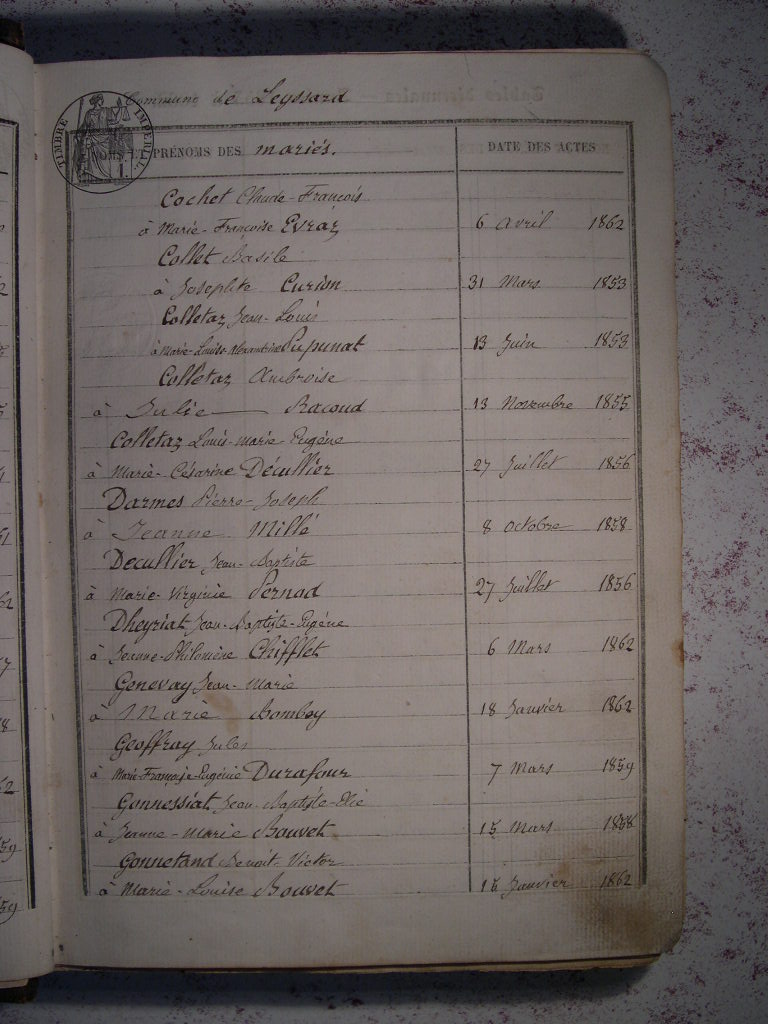 Commune de Leyssard
TIMBRE IMPÉRIAL
NOMS ET PRÉNOMS DES mariés. DATE DES ACTES
Cochet Claude-François
à Marie-Françoise Evraz 6 Avril 1862
Collet Basile
à Josephte Curion 31 Mars 1853
Colletaz Jean-Louis
à Marie-Louise Alexandrine Pupunat 13 Juin 1853
Colletaz Ambroise
à Julie Racoud 13 Novembre 1855
Colletaz Louis-Marie Eugène
à Marie-Césarine Décullier 27 Juillet 1856
Darmes Pierre-Joseph
à Jeanne Millé 8 Octobre 1858
Decullier Jean-Baptiste
à Marie-Virginie Pernod 27 Juillet 1856
Dheyriat Jean-Baptiste-Eugène
à Jeanne-Philomène Chifflet 6 Mars 1862
Genevay Jean-Marie
à Marie Bomboy 18 Janvier 1862
Geoffray Jules
à Marie-Françoise-Eugénie Durafour 7 Mars 1859
Gonnessiat Jean-Baptiste-Elie
à Jeanne-Marie Bouvet 15 Mars 1858
Gonnetand Benoit Victor
à Marie-Louise Bouvet 15 Janvier 1862